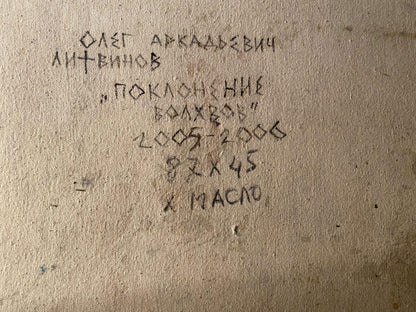 ОЛЕГ АРКАДЬЕВИЧ
ЛИТВИНОВ
„ПОКЛОНЕНИЕ
ВОЛХВОВ"
2005-2006
87 X 45
Х МАСЛО